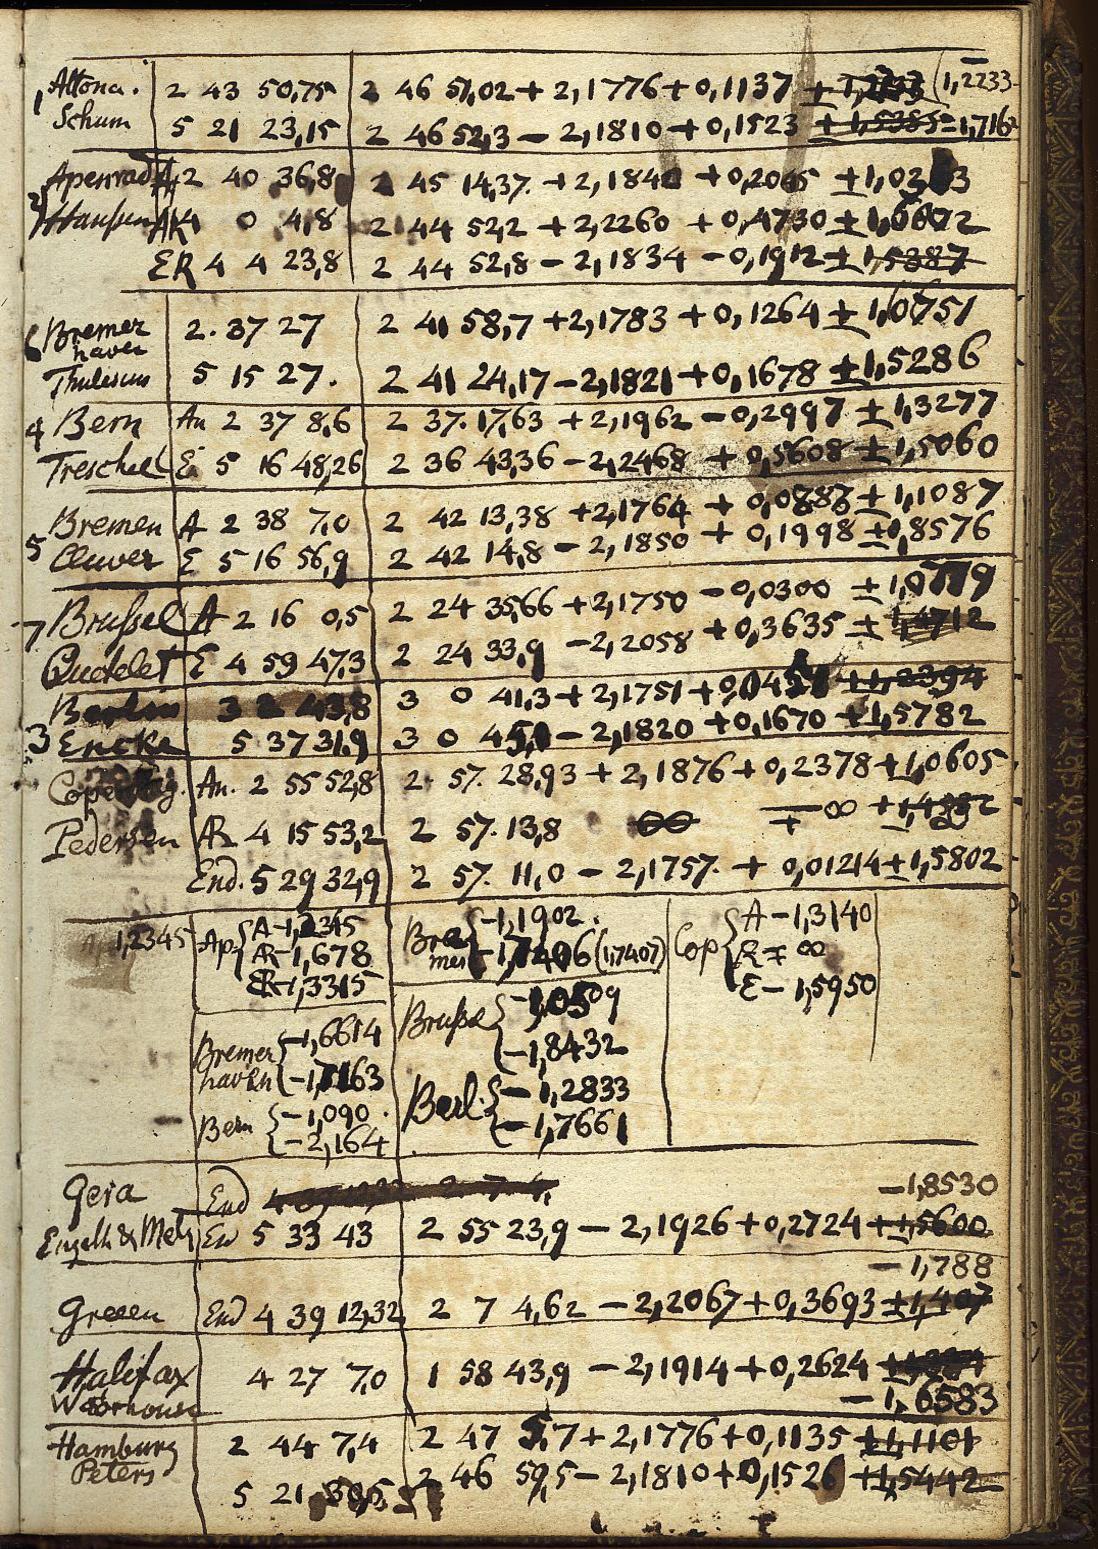 1, Altona. 2 43 50,75 2 46 51,02 + 2,1776 + 0,1137 ± (1,2233
Schum 5 21 23,15 2 46 52,3 − 2,1810 + 0,1523 ± 1,5385 − 1,7162
2) Apenrad A 2 40 36,8 2 45 14,37. + 2,1840 + 0,2065 ± 1,02
Hansen AR 4 0 4,8 2 44 52,2 + 2,2260 + 0,4730 ±
ER 4 4 23,8 2 44 52,8 − 2,1834 − 0,1912 ± 1,5387
6 Bremer 2. 37 27 2 41 58,7 + 2,1783 + 0,1264 ± 1,0751
haven
Thulesius 5 15 27. 2 41 24,17 − 2,1821 + 0,1678 ± 1,5286
4 Bern An 2 37 8,6 2 37. 17,63 + 2,1962 − 0,2997 ± 1,3277
Trechsel E 5 16 48,26 2 36 43,36 − 2,2468 + 0,5608 ± 1,5060
5 Bremen A 2 38 7,0 2 42 13,38 + 2,1764 + 0,0887 ± 1,1087
Cluver E 5 16 56,9 2 42 14,8 − 2,1850 + 0,1998 ± 1,8576
7 Brussel A 2 16 0,5 2 24 35,66 + 2,1750 − 0,0300 ± 1,0779
Quetelet E 4 59 47,3 2 24 33,9 − 2,2058 + 0,3635 ± 1,4712
Berlin 3 2 43,8 3 0 41,3 + 2,1751 + ± 1,2394
3 Encke 5 37 31,9 3 0 − 2,1820 + 0,1670 + 1,5782
An. 2 55 52,8 2. 57. 28,93 + 2,1876 + 0,2378 ± 1,0605
Pedersen AR 4 15 53,2 2 57. 13,8 ∞ ∓ ∞
End. 5 29 32,9 2 57. 11,0 − 2,1757. + 0,01214 ± 1,5802
A 1,2345 Ap { A − 1,2345
AR − 1,678
ER − 1,3315
Bremer haven { − 1,6614
− 1,7163
Bern { − 1,090.
− 2,164
Bremen { − 1,1902.
− 1,7406 (1,7407)
Brussel {
− 1,8432
Berl. { − 1,2833
− 1,7661
Cop { A − 1,3140
R ∓ ∞
E − 1,5950
Gera End 4 − 1,8530
En 5 33 43 2 55 23,9 − 2,1926 + 0,2724 ± 1,5600
− 1,788
End 4 39 12,32 2 7 4,62 − 2,2067 + 0,3693 ± 1,407
Halifax 4 27 7,0 1 58 43,9 − 2,1914 + 0,2624
− 1,6583
Hamburg 2 44 7,4 2 47 5,7 + 2,1776 + 0,1135 ± 1,1101
Peters 5 21 2 46 59,5 − 2,1810 + 0,1526 ± 1,5442